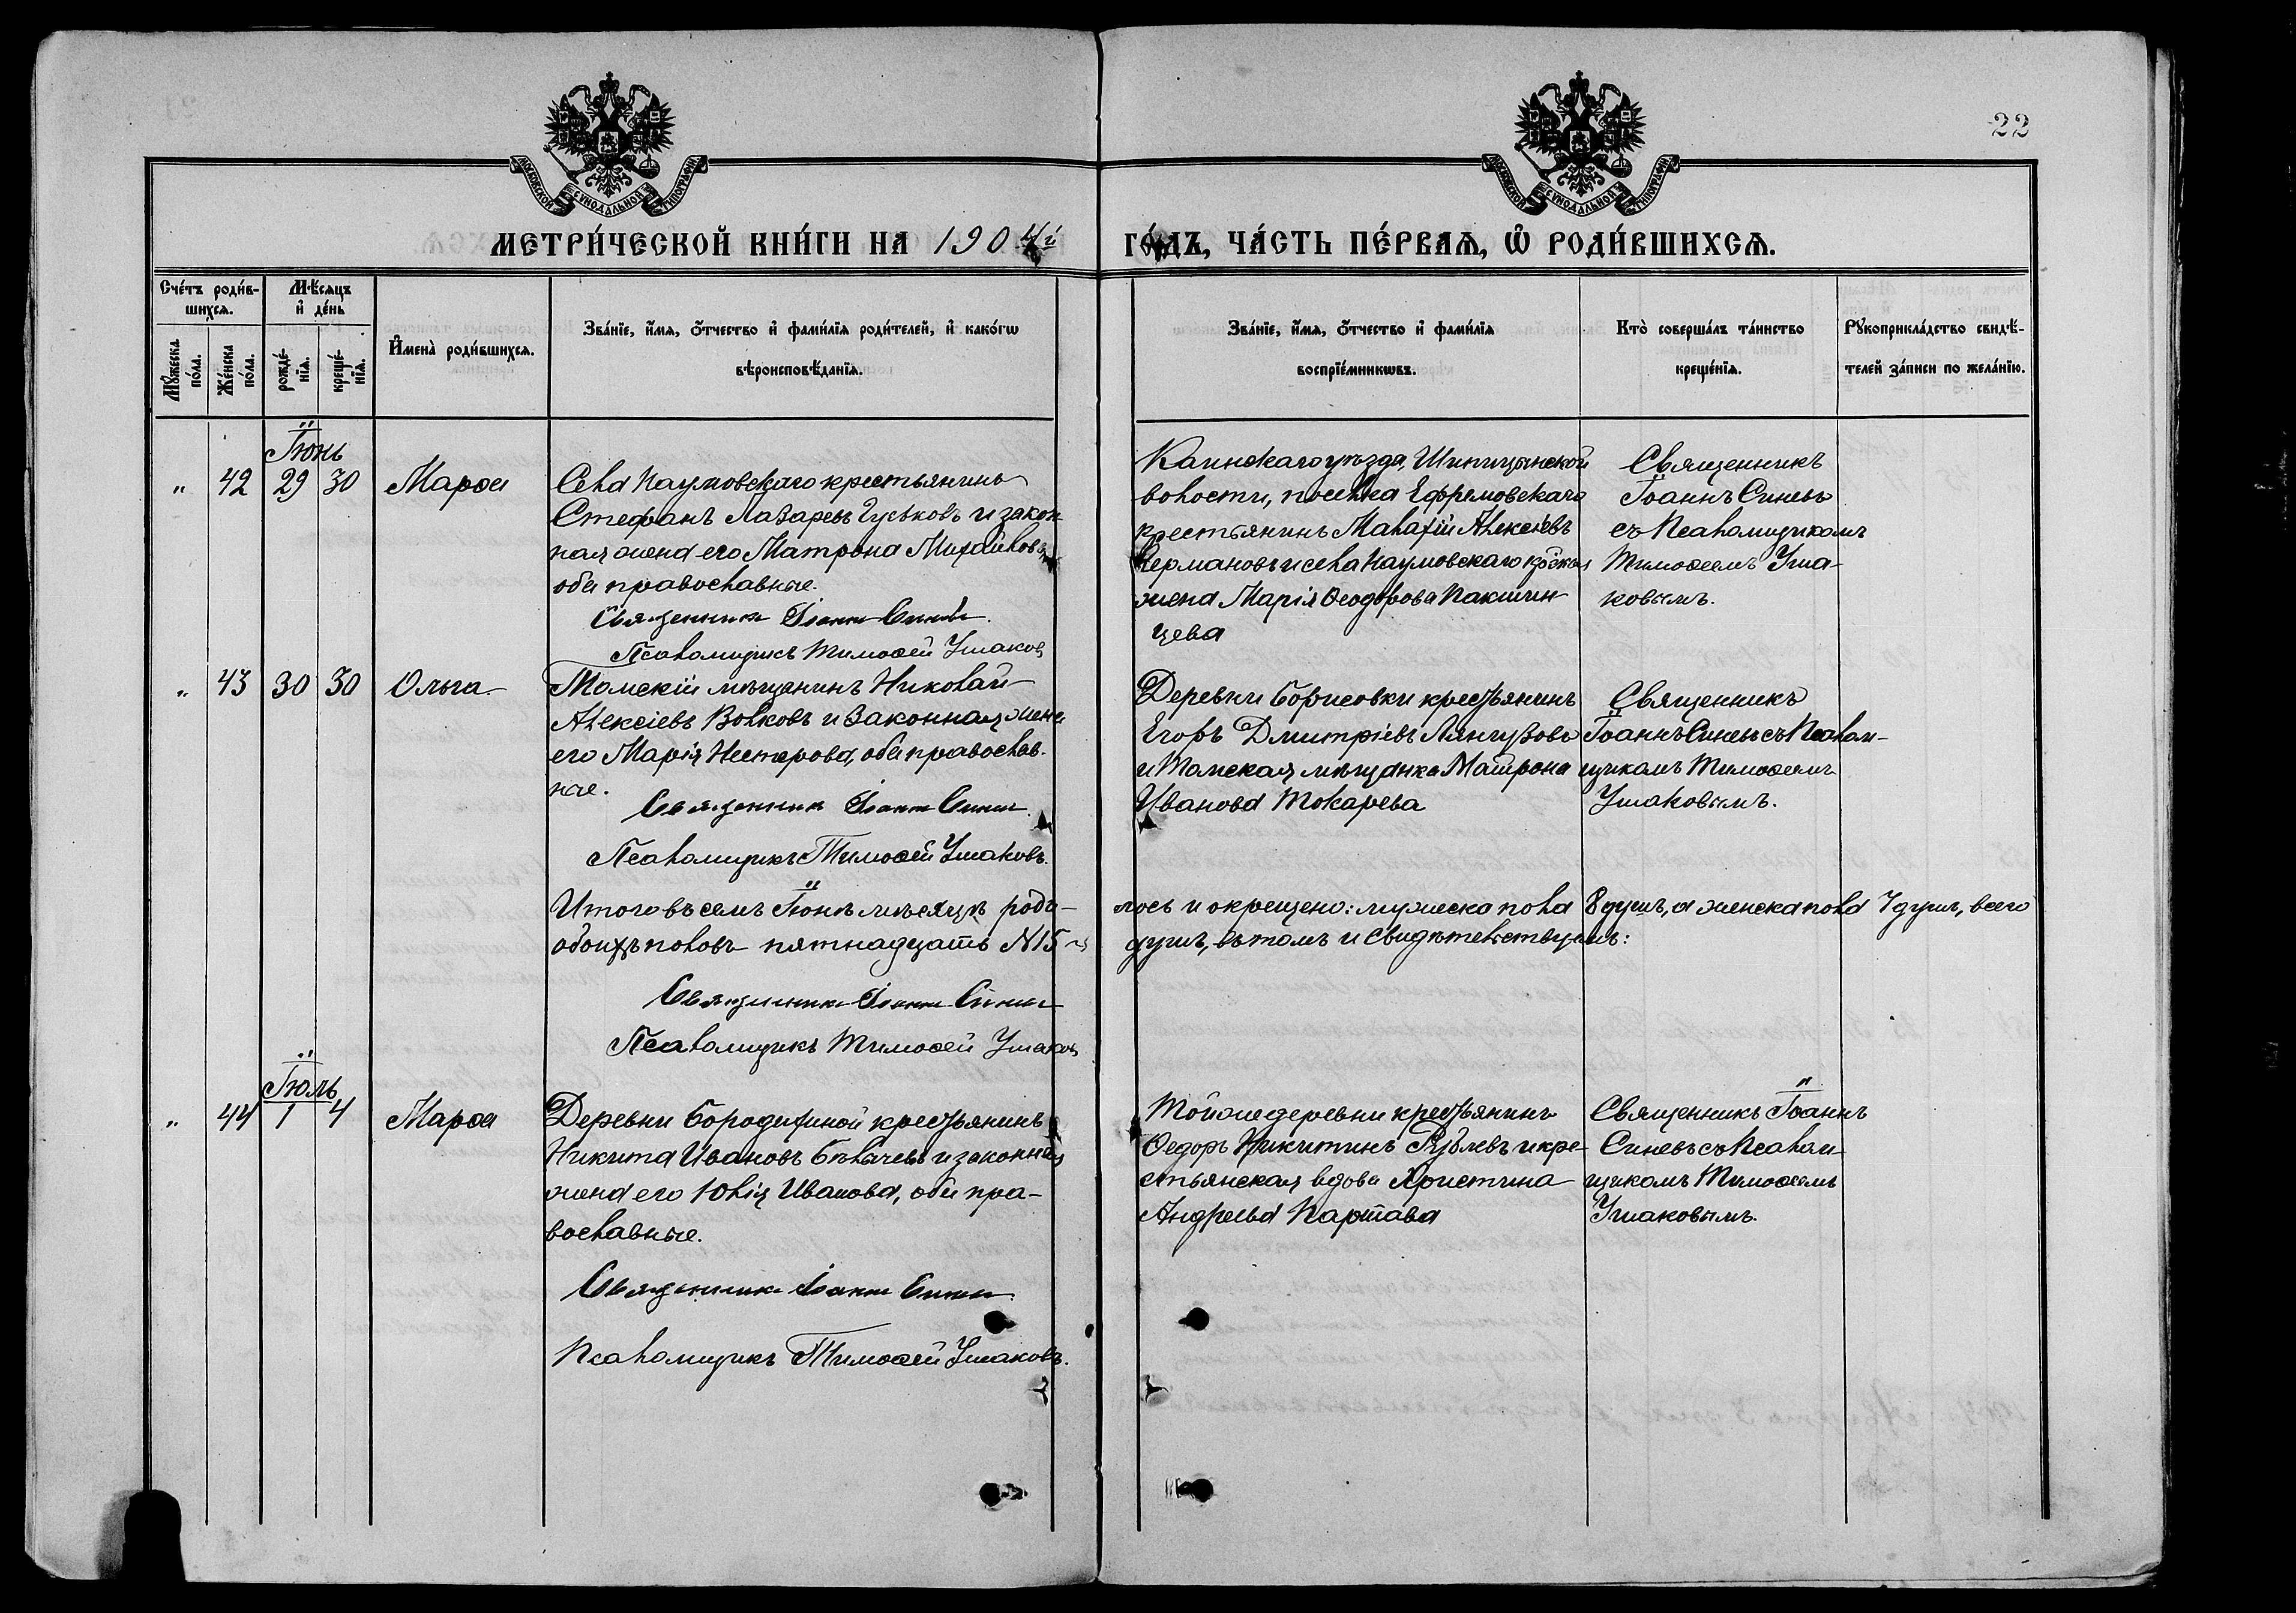 22
МОСКОВСКОЙ СѴНОДАЛЬНОЙ ТИПОГРАФІИ
МОСКОВСКОЙ СѴНОДАЛЬНОЙ ТИПОГРАФІИ
МЕТРИ́ЧЕСКОЙ КНИ́ГИ НА 1904й ГО́ДЪ, ЧА́СТЬ ПЕ́РВАѦ, Ѡ҆ РОДИ́ВШИХСѦ.
Сче́тъ роди́в-
шихсѧ.
Мꙋ́жеска по́ла.
Же́нска по́ла.
Мѣ́сѧцъ
и҆ де́нь
рожде́-
нїѧ.
креще́-
нїѧ.
И҆мена̀ роди́вшихсѧ.
Зва́нїе, и҆́мѧ, о҆́тчество и҆ фами́лїѧ роди́телей, и҆ како́гѡ
вѣроисповѣ́данїѧ.
Зва́нїе, и҆́мѧ, о҆́тчество и҆ фами́лїѧ
воспрїе́мникѡвъ.
Кто̀ соверша́лъ та́инство
креще́нїѧ.
Рꙋкоприкла́дство свидѣ́-
телей за́писи по жела́нїю.
Іюнь
" 42 29 30 Марѳа
Села Наумовскаго крестьянинъ
Стефанъ Лазаревъ Гуськовъ и закон-
ная жена его Матрона Михайлова,
оба православные.
Священникъ Іоаннъ Синевъ.
Псаломщикъ Тимоѳей Ушаковъ
Каинскаго уѣзда, Шипицынской
волости, поселка Ефремовскаго
крестьянинъ Малафій Алексіевъ
Германовъ и села Наумовскаго кр-ская
жена Марія Ѳеодорова Пакшин-
цева
Священникъ
Іоаннъ Синевъ
съ Псаломщикомъ
Тимоѳеемъ Уша-
ковымъ.
" 43 30 30 Ольга
Томскій мѣщанинъ Николай
Алексіевъ Волковъ и законная жена
его Марія Нестерова, оба православ-
ные.
Священникъ Іоаннъ Синевъ.
Псаломщикъ Тимоѳей Ушаковъ.
Деревни Борисовки крестьянинъ
Егоръ Дмитріевъ Лянгузовъ
и Томская мѣщанка Матрона
Иванова Токарева
Священникъ
Іоаннъ Синевъ съ Псалом-
щикомъ Тимоѳеемъ
Ушаковымъ.
Итого въ семъ Іюнѣ мѣсяцѣ роди-лось и окрещено: мужеска пола 8 душъ, а женска пола 7 душъ, всего
обоихъ половъ пятнадцать №15-ть душъ, въ томъ и свидѣтельствуемъ:
Священникъ Іоаннъ Синевъ
Псаломщикъ Тимоѳей Ушаковъ
Іюль
" 44 1 4 Марѳа
Деревни Бородихиной крестьянинъ
Никита Ивановъ Бѣлачевъ и законная
жена его Юлія Иванова, оба пра-
вославные.
Священникъ Іоаннъ Синевъ.
Псаломщикъ Тимоѳей Ушаковъ.
Той же деревни крестьянинъ
Ѳедоръ Никитинъ Рублевъ и кре-
стьянская вдова Христина
Андреева
Священникъ Іоаннъ
Синевъ съ Псалом-
щикомъ Тимоѳеемъ
Ушаковымъ.